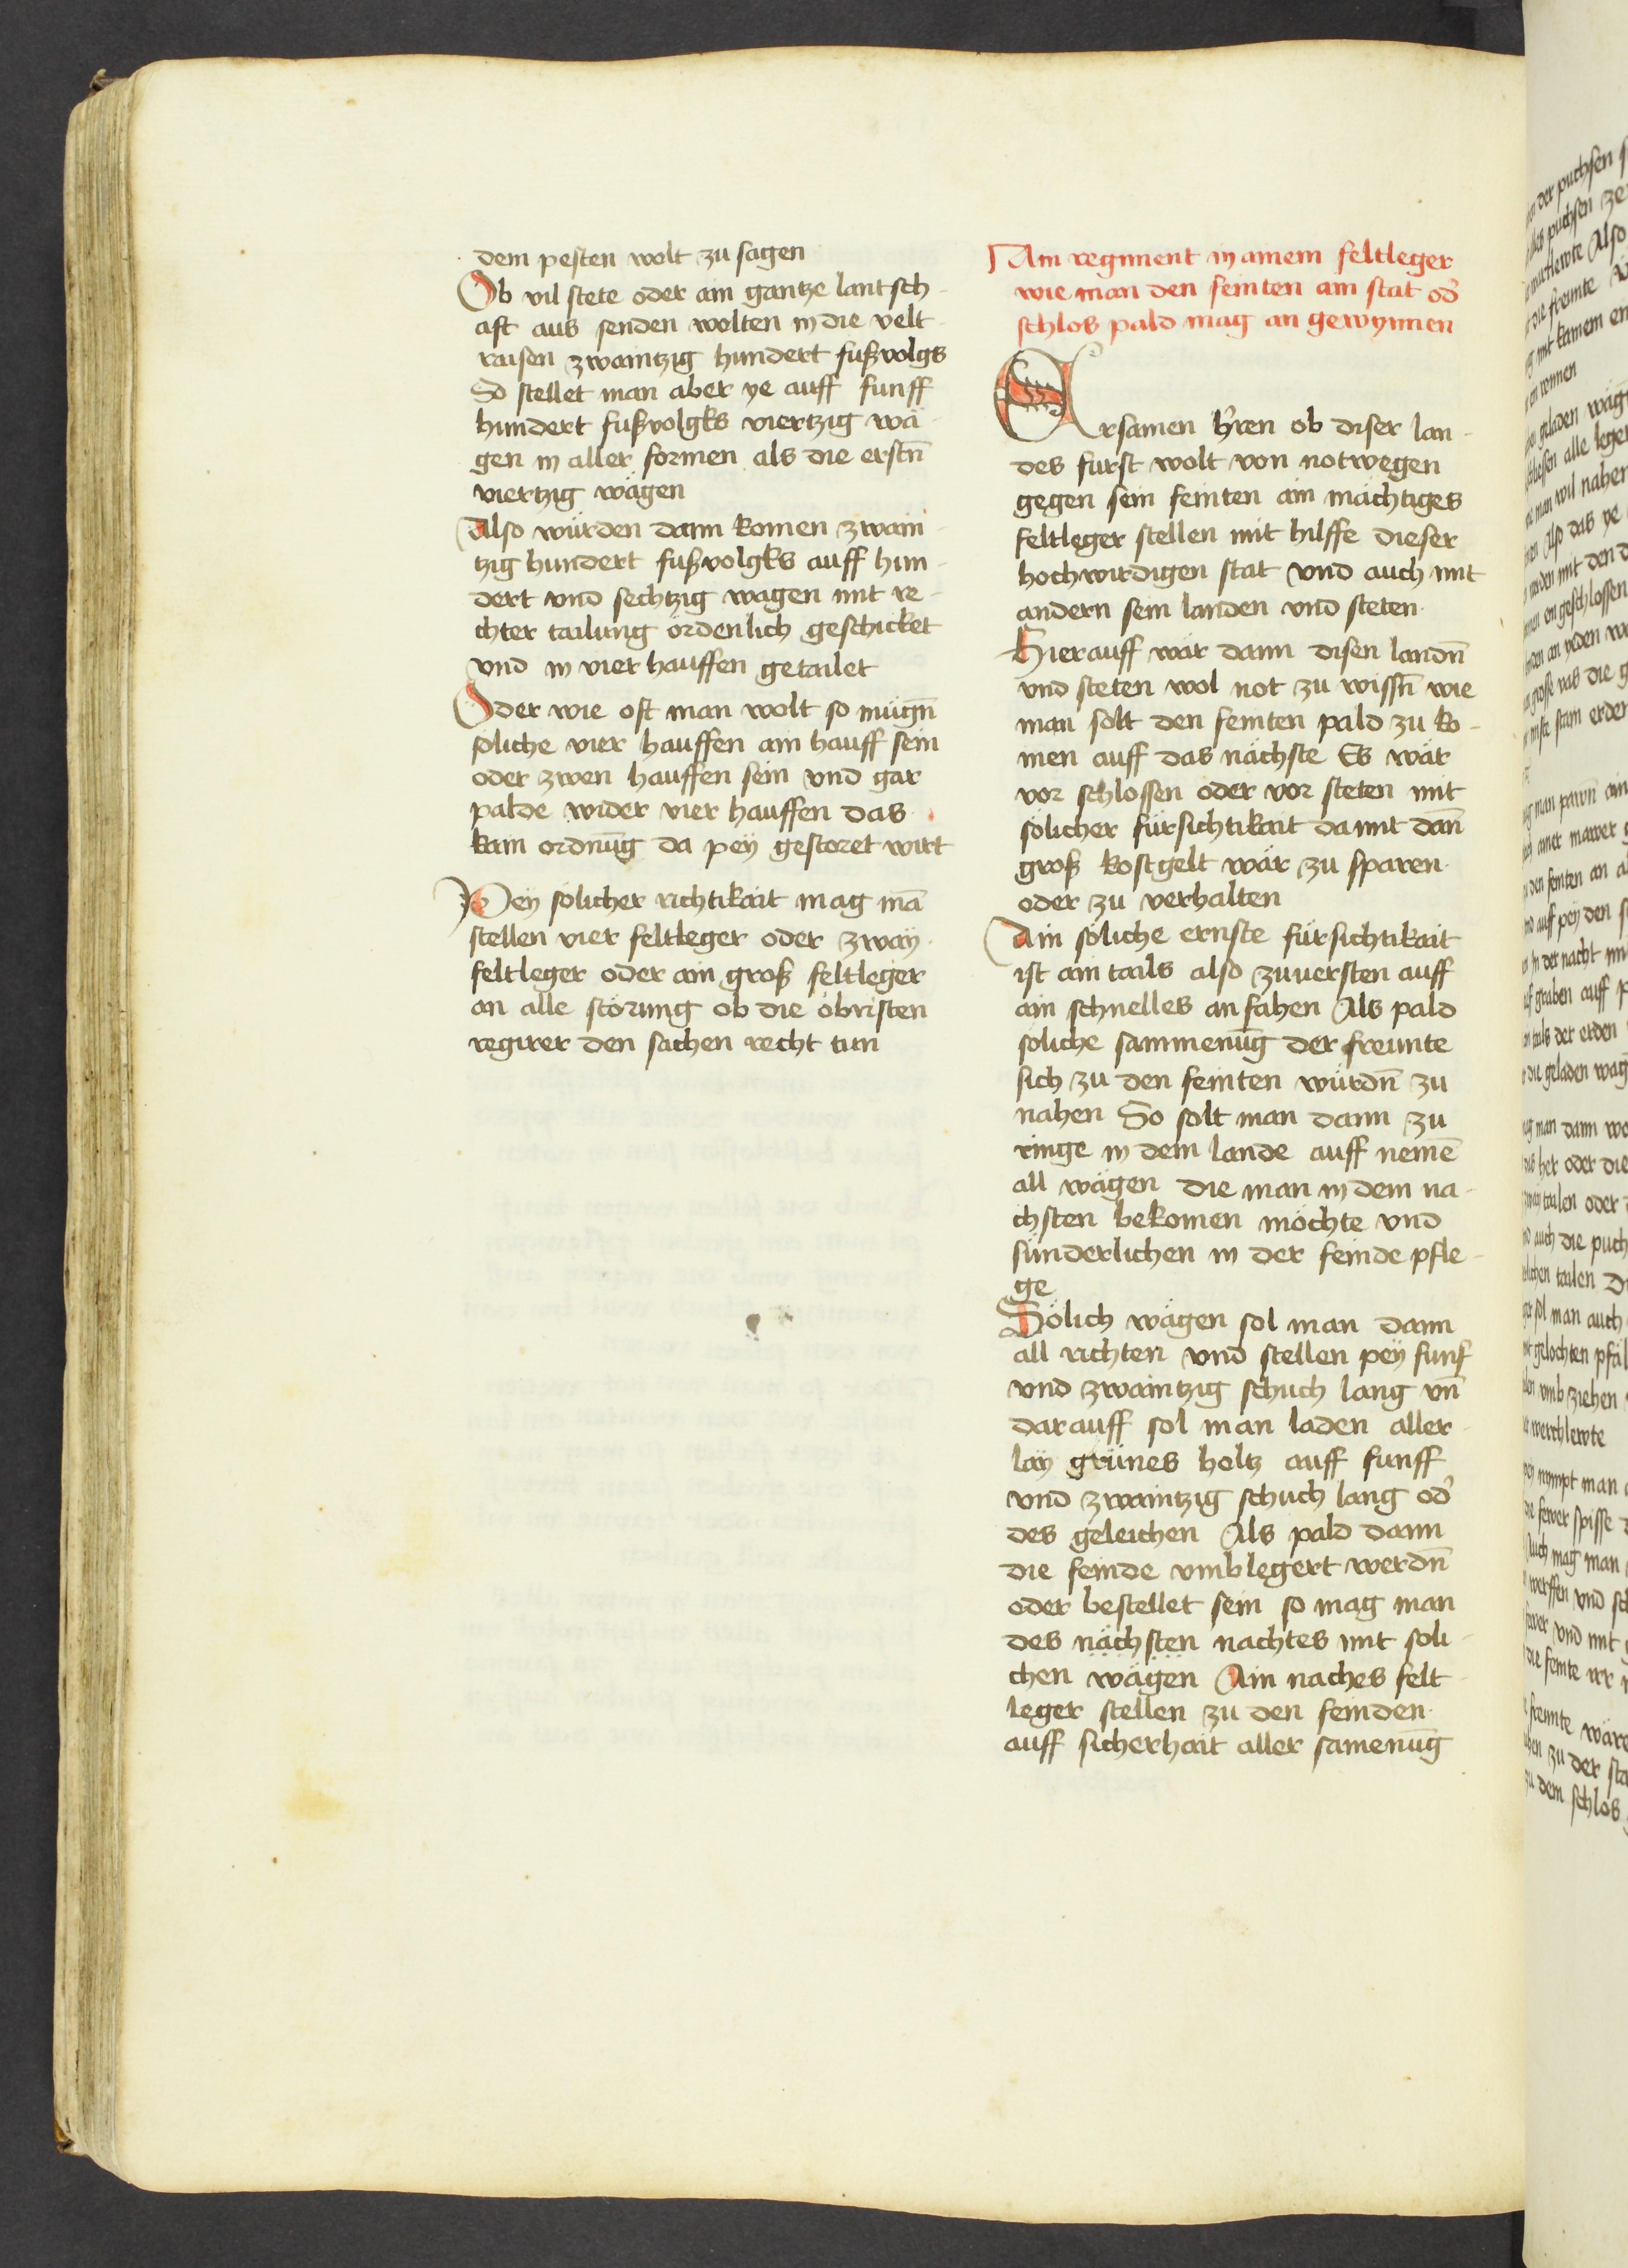 dem pesten wolt zu sagen
Ob vil stete oder ain gantze lantsch-
aft aus senden wolten in die velt
raisen zwaintzig hundert fußvolgs
So stellet man aber ye auff funff
hundert fußvolgks viertzig wä-
gen in aller formen als die erstn̄
viertzig wägen
Also würden dann komen zwain-
tzig hundert fußvolgks auff hun-
dert vnd sechtzig wagen mit re-
chter tailung ördenlich geschicket
vnd in vier hauffen getailet
Oder wie oft man wolt so mügn̄
söliche vier hauffen ain hauff sein
oder zwen hauffen sein vnd gar
palde wider vier hauffen das
kain ordnūg da peÿ gestoret wirt
Peÿ sölicher richtikait mag mā
stellen vier feltleger oder zwaÿ
feltleger oder ain groß feltleger
an alle störung ob die öbristen
regirer den sachen recht tun
Ain regiment in ainem feltleger
wie man den feinten ain stat od̉
schlos pald mag an gewynnen
Ersamen h̉ren ob diser lan-
des fürst wolt von notwegen
gegen sein feinten ain mächtiges
feltleger stellen mit hilffe dieser
hochwirdigen stat vnd auch mit
andern sein landen vnd steten
Hierauff wär dann disen landn̄
vnd steten wol not zu wissn̄ wie
man solt den feinten pald zu ko-
men auff das nächste Es wär
vor schlossen oder vor steten mit
sölicher fürsichtikait damit dan̄
groß kostgelt wär zu sparen
oder zu verhalten
Ain söliche ernste fürsichtikait
ist ain tails also zuuersten auff
ain schnelles anfahen Als pald
söliche sammenūg der freunte
sich zu den feinten würdn̄ zu
nahen So solt man dann zu
ringe in dem lande auff nemē
all wägen die man in dem na-
chsten bekomen möchte vnd
sünderlichen in der feinde pfle-
ge
Sölich wägen sol man dann
all richten vnd stellen peÿ funf
vnd zwaintzig schuch lang vn̄
darauff sol man laden aller-
laÿ grünes holtz auff funff
vnd zwaintzig schuch lang od̉
des geleichen Als pald dann
die feinde vmblegert werdn̄
oder bestellet sein so mag man
des nächsten nachtes mit söli-
chen wägen Ain naches felt-
leger stellen zu den feinden
auff sicherhait aller samenūg